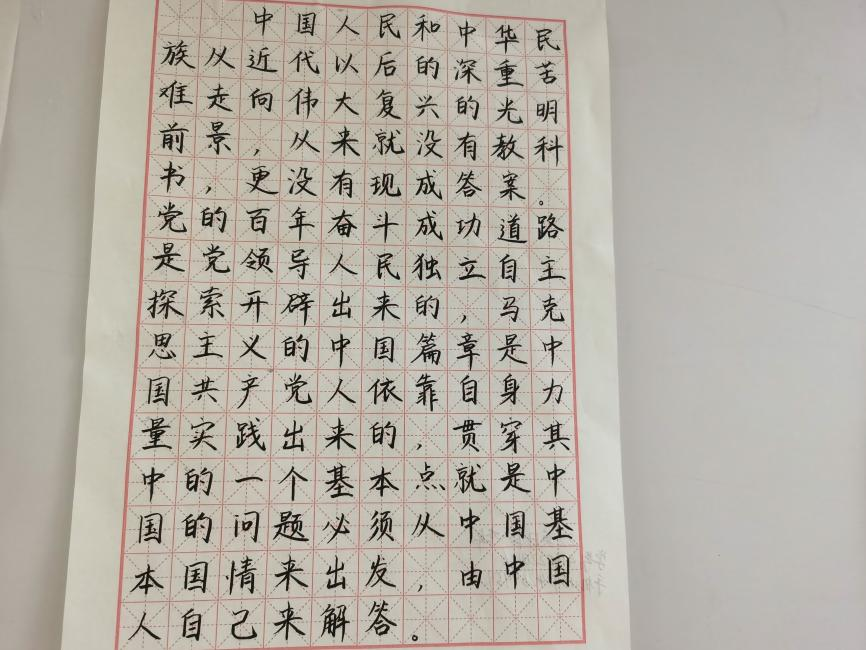 中国人民和中华民
族从近代以后的深重苦
难走向伟大复兴的光明
前景，从来就没有教科
书，更没有现成答案。
党的百年奋斗成功道路
是党领导人民独立自主
探索开辟出来的，马克
思主义的中国篇章是中
国共产党人依靠自身力
量实践出来的，贯穿其
中的一个基本点就是中
国的问题必须从中国基
本国情来出发，由中国
人自己来解答。